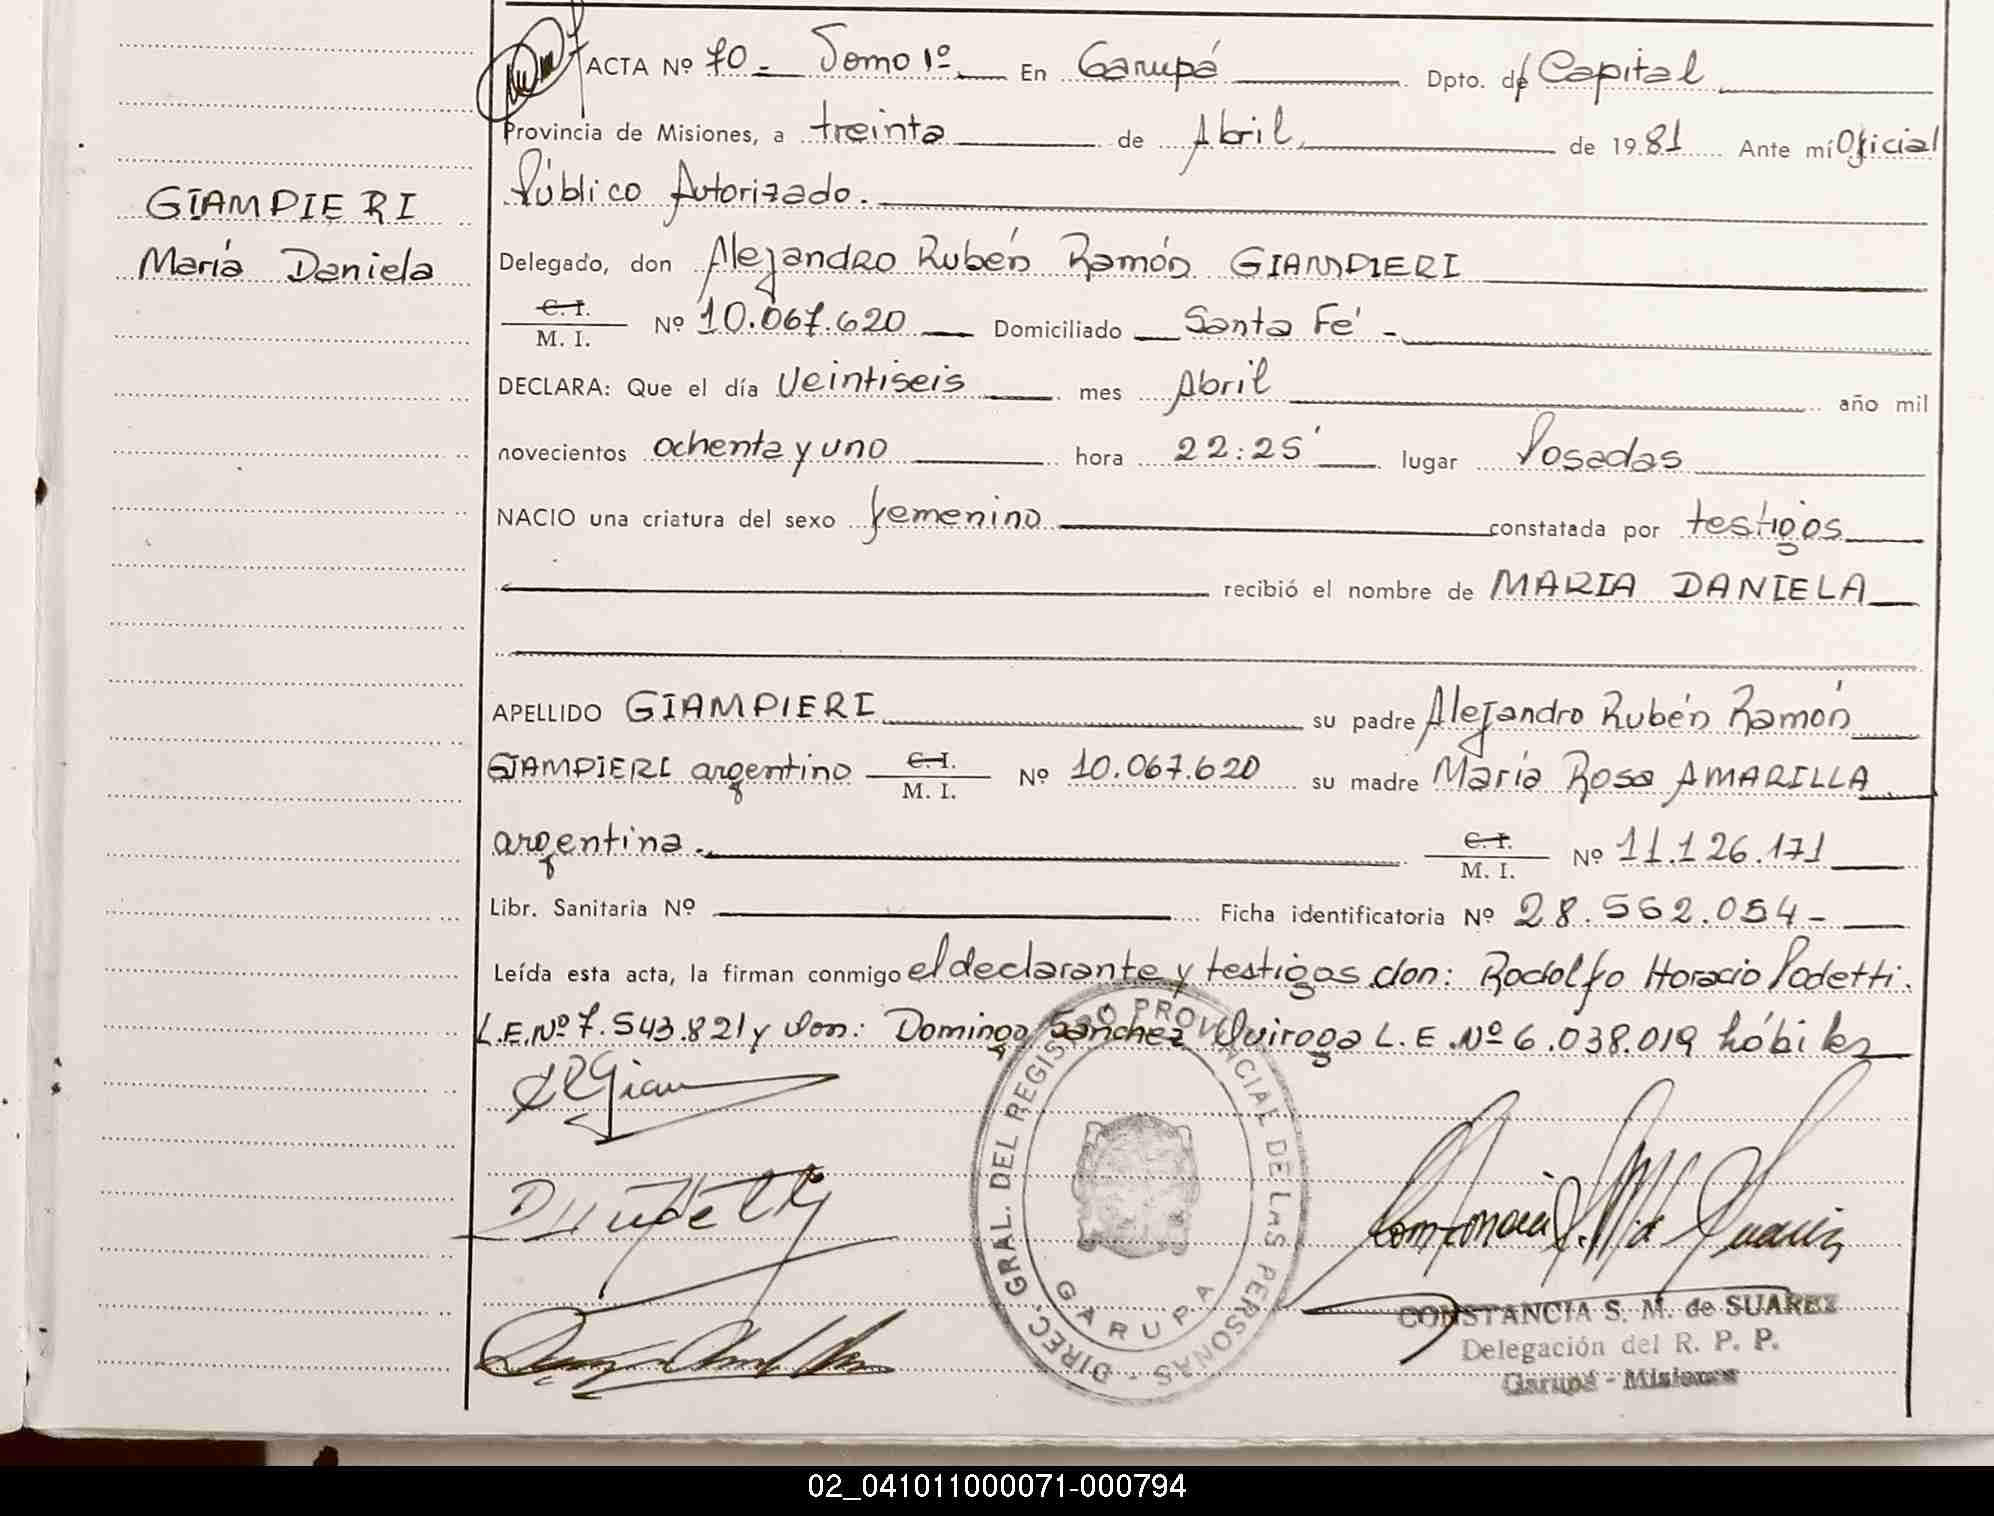 ACTA Nº 70.- Tomo 1º En Garupá Dpto. de Capital
Provincia de Misiones, a treinta de Abril, de 1981 Ante mí Oficial
Público Autorizado.
GIAMPIERI
María Daniela
Delegado, don Alejandro Rubén Ramón GIAMPIERI
C. I.
M. I. Nº 10.067.620 Domiciliado Santa Fé -
DECLARA: Que el día Veintiseis mes Abril año mil
novecientos ochenta y uno hora 22:25' lugar Posadas
NACIO una criatura del sexo femenino constatada por testigos
recibió el nombre de MARIA DANIELA
APELLIDO GIAMPIERI su padre Alejandro Rubén Ramón
GIAMPIERI argentino C. I. M. I. Nº 10.067.620 su madre María Rosa AMARILLA
argentina. C. I. M. I. Nº 11.126.171
Libr. Sanitaria Nº Ficha identificatoria Nº 28.562.054-
Leída esta acta, la firman conmigo el declarante y testigos don: Rodolfo Horacio Podetti.
L.E.Nº 7.543.821 y don: Domingo Sánchez Quiroga L.E.Nº 6.038.019 hábiles
DIREC. GRAL. DEL REGISTRO PROVINCIAL DE LAS PERSONAS -
GARUPA
CONSTANCIA S. M. de SUAREZ
Delegación del R. P. P.
Garupá - Misiones
02_041011000071-000794